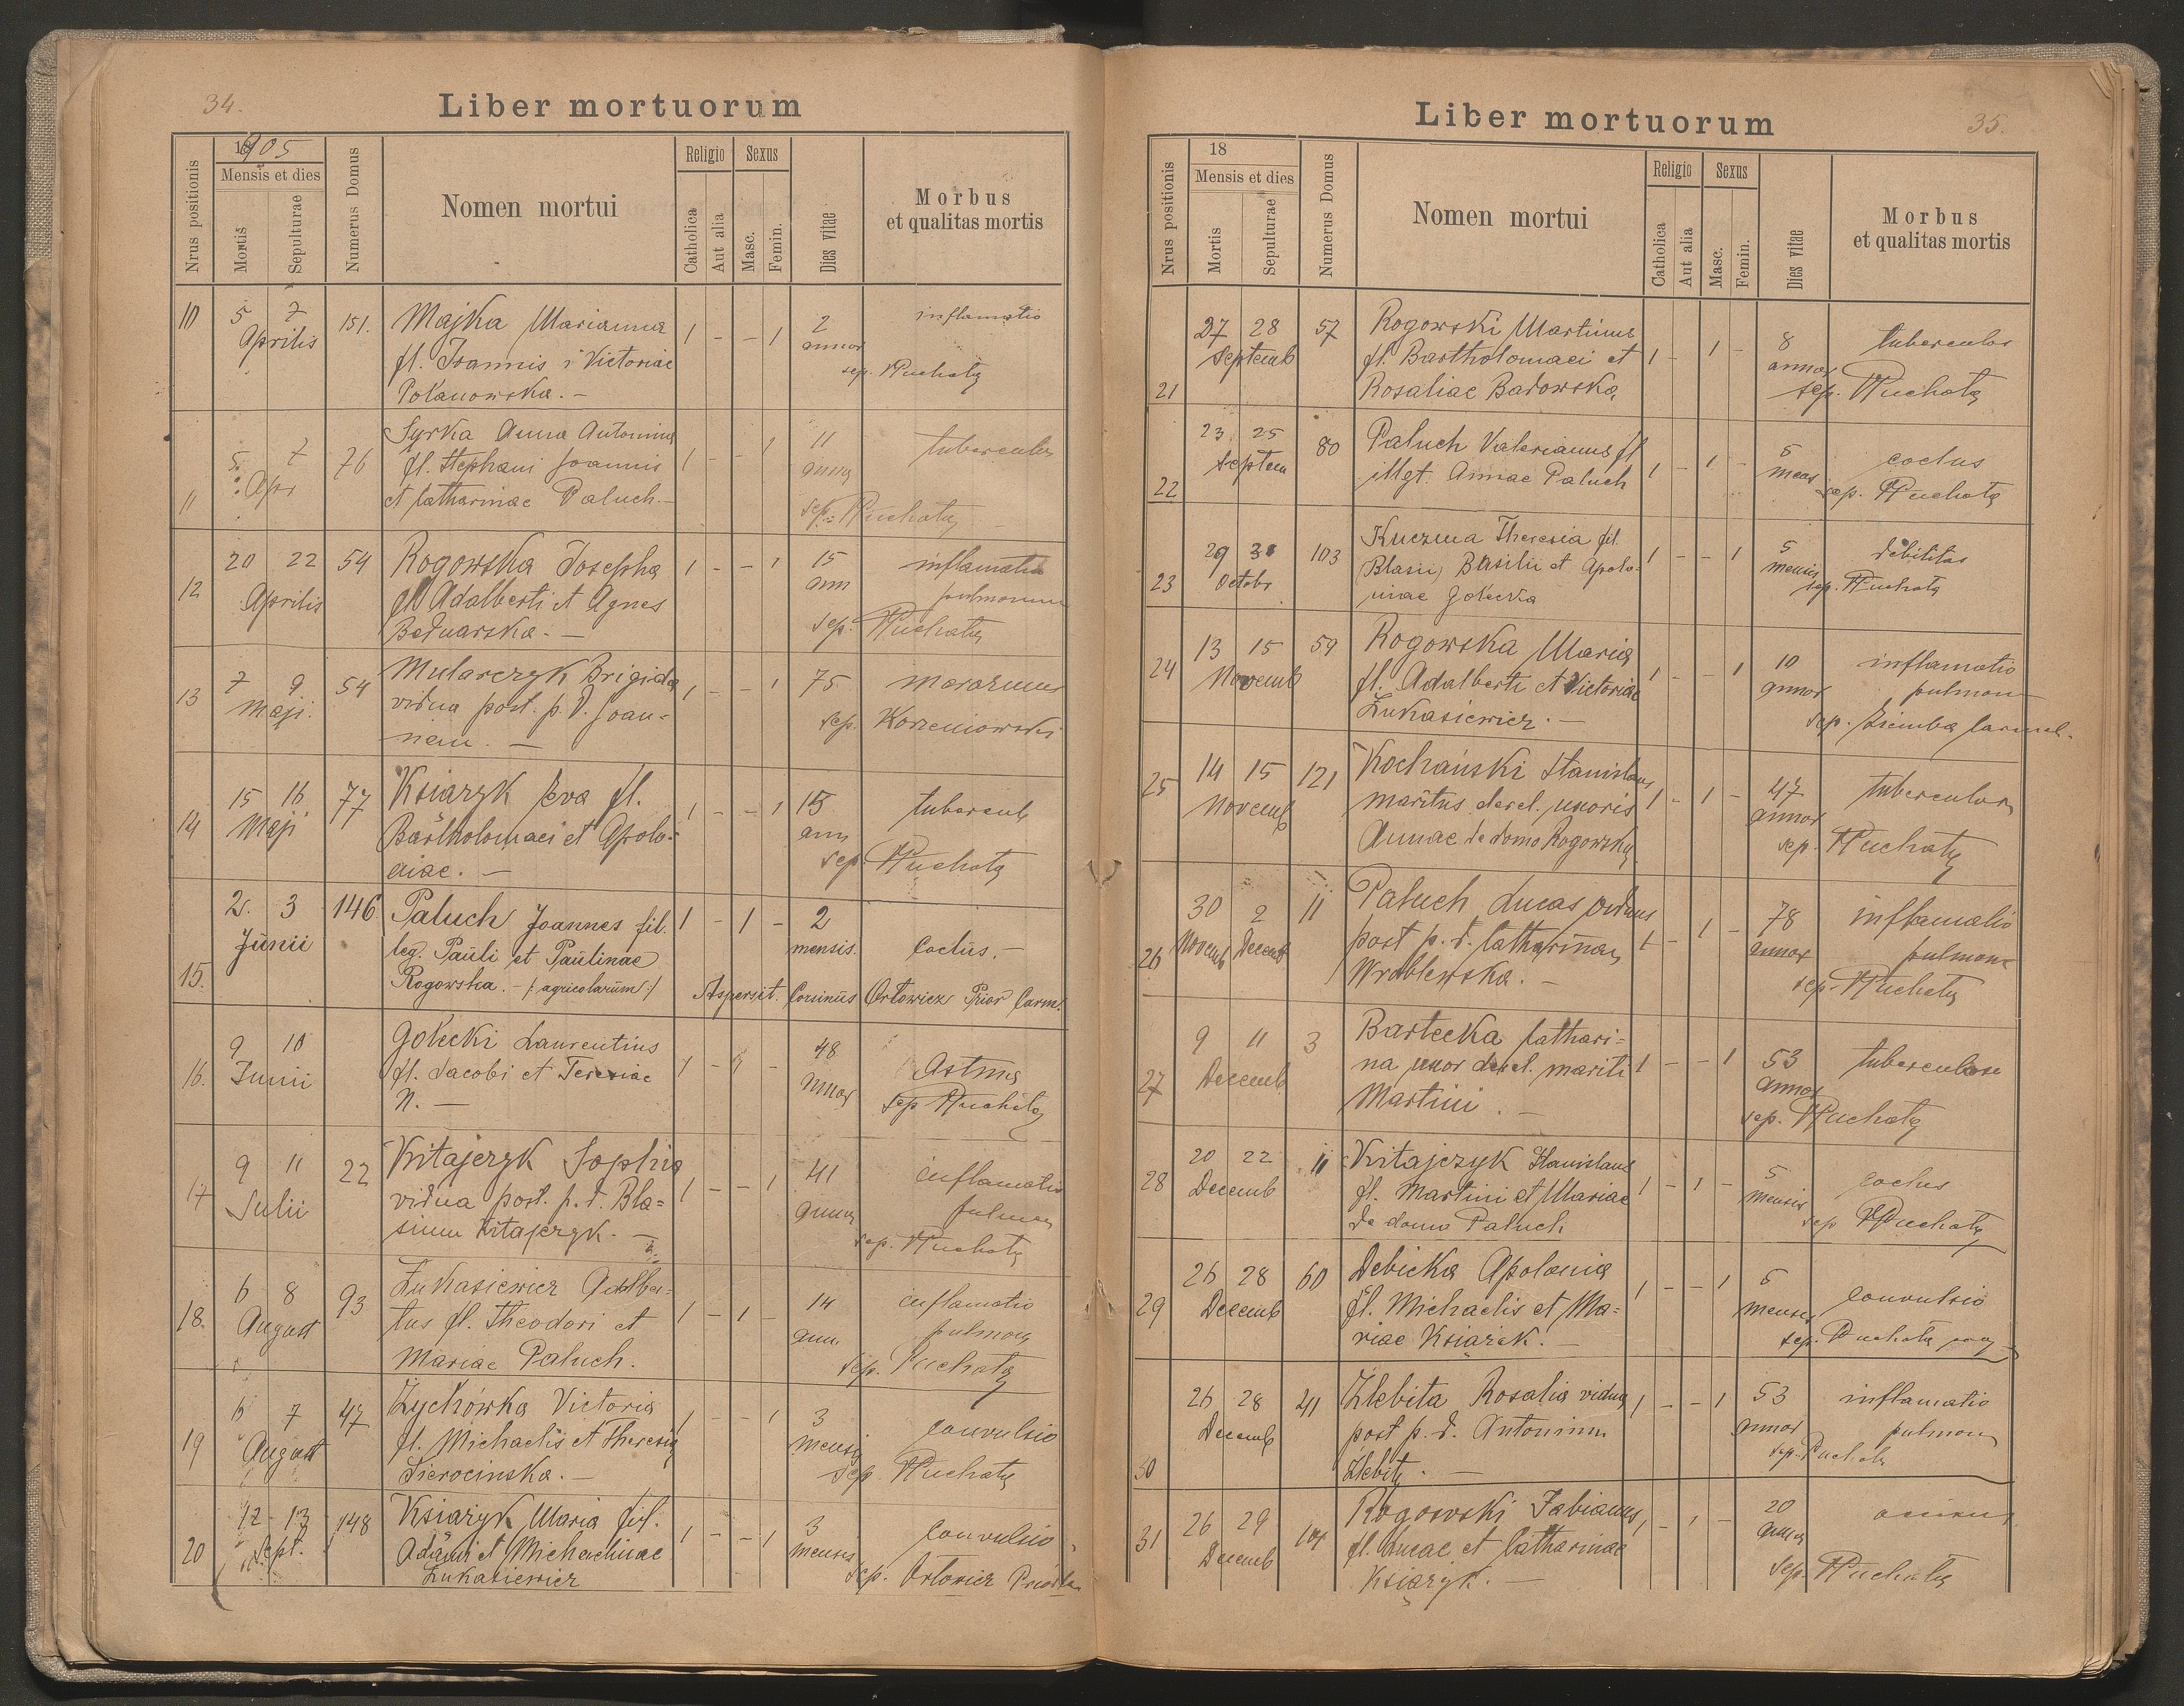 34.
Liber mortuorum
1905
Nrus positionis
Mensis et dies
Mortis
Sepulturae
Numerus Domus
Nomen mortui
Religio
Catholica
Aut alia
Sexus
Masc.
Femin.
Dies vitae
Morbus
et qualitas mortis
10 5 7 151. Majka Marianna 1 - - 1 2 inflamatio
Aprilis fl. Joannis i Victoriae annor
Polanowska. — sep. PPuchałę
11 5 7 76 Syrka Anna Antonina 1 - - 1 11 tuberculos
Apr fl. Stephani Joannis
et Catharinae Paluch. — sep. PPuchałę
12 20 22 54 Rogowska Josepha 1 - - 1 15 inflamatio
Aprilis fl. Adalberti et Agnes ann pulmonum
Bednarska. — sep. PPuchałę
13 7 9 54 Mularczyk Brigida 1 - - 1 75 marazmus
Maji. vidua post. p. d. Joan-
nem. — sep. Korzeniowski
14 15 16 77 Ksiarzyk Eva fl. 1 - - 1 15 tubercul
Maji Bartholomaei et Apolo- ann
niae. — sep. PPuchałę
15. 2. 3 146 Paluch Joannes fil. 1 - 1 - 2
Junii leg. Pauli et Paulinae mensis. Coctus. —
Rogowska. — /: agricolarum :/ Aspersit. Corsinus Orłowicz Prior Carm.
16. 9 10 Gołecki Laurentius 1 - 1 - 48 Astma
Junii fl. Jacobi et Teresiae annor
N. — sep PPuchałę
17 9 11 22 Kitajczyk Sophia 1 - - 1 41 inflamatio
Julii vidua post. p. d. Bla-
sium Kitajczyk. — sep. PPuchałę
18. 6 8 93 Łukasiewicz Adalber- 1 - 1 - 14 inflamatio
August tus fl. Theodori et ann. pulmon
Mariae Paluch. sep. Puchałę
19 6 7 47 Zychówka Victoria 1 - - 1 3 convulsio
August fl. Michaelis et Theresia mensis
Sierocinska. — sep. PPuchałę
20 12 13 148 Ksiarzyk Maria fil. 1 - - 1 3 convulsio
Sept. Adami et Michaelinae mensis
Łukasiewicz sep. Orłowicz Prior
Liber mortuorum
35.
18
Nrus positionis
Mensis et dies
Mortis
Sepulturae
Numerus Domus
Nomen mortui
Religio
Catholica
Aut alia
Sexus
Masc.
Femin.
Dies vitae
Morbus
et qualitas mortis
21 27 28 57 Rogowski Martinus 1 - 1 - 8 tuberculos
Septemb fl. Bartholomaei et annor
Rosaliae Badowska sep. PPuchałę
22 23 25 80 Paluch Valerianus fl 1 - 1 - 5 coctus
Septem illgt. Annae Paluch mens sep. PPuchałę
23 29 31 103 Kuczma Theresia fil. 1 - - 1 5 debilitas
Octobr (Blasii) Basilii et Apolo- mensis
niae Gołecka sep. PPuchałę
24 13 15 59 Rogowska Maria 1 - - 1 10 inflamatio
Novemb fl. Adalberti et Victoriae annor pulmon
Łukasiewicz. — sep. Ziemba Carmel.
25 14 15 121 Kochański Stanislaus 1 - 1 - 47 tuberculos
Novemb maritus derel. uxoris annor
Annae de domo Rogowska sep. PPuchałę
26 30 2 11 Paluch Lucas viduus 1 - 1 - 78 inflamatio
Novemb Decemb post p. d. Catharinam annor pulmon
Wroblewska. — sep. PPuchałę
27 9 11 3 Bartecka Cathari- 1 - - 1 53 tuberculose
Decemb na uxor derel. mariti annor
Martini. — sep. PPuchałę
28 20 22 11 Kitajczyk Stanislaus 1 - 1 - 5 coctus
Decemb fl. Martini et Mariae mensis
de domo Paluch sep PPuchałę
29 26 28 60 Debicka Apolonia 1 - - 1 5 convulsio
Decemb fl. Michaelis et Ma- mensis
riae Książek. — sep. Puchałę
30 26 28 41 Zlebita Rosalia vidua 1 - - 1 53 inflamatio
Decemb post p. d. Antonium annor pulmon
Zlebitę. — sep. Puchałę
31 26 29 Rogowski Fabianus 1 - 1 - 20
Decemb fl. Lucae et Catharinae
Książyk. — sep. PPuchałę